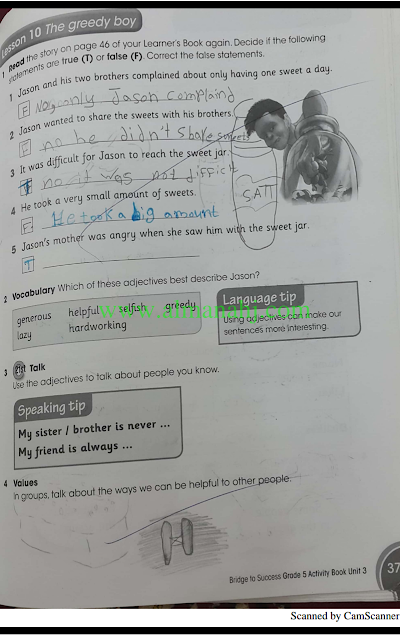 Lesson 10 The greedy boy
1 Read the story on page 46 of your Learner's Book again. Decide if the following
statements are true (T) or false (F). Correct the false statements.
1 Jason and his two brothers complained about only having one sweet a day.
F No, only Jason complaind
2 Jason wanted to share the sweets with his brothers.
F no he didn't share sweets
3 It was difficult for Jason to reach the sweet jar.
no it was not difficlt
4 He took a very small amount of sweets.
F He took a big amount
5 Jason's mother was angry when she saw him with the sweet jar.
T
2 Vocabulary Which of these adjectives best describe Jason?
generous helpful selfish greedy
lazy hardworking
Language tip
Using adjectives can make our
sentences more interesting.
www.almanahj.com
3 21st Talk
Use the adjectives to talk about people you know.
Speaking tip
My sister / brother is never ...
My friend is always ...
4 Values
In groups, talk about the ways we can be helpful to other people.
Bridge to Success Grade 5 Activity Book Unit 3
37
Scanned by CamScanner